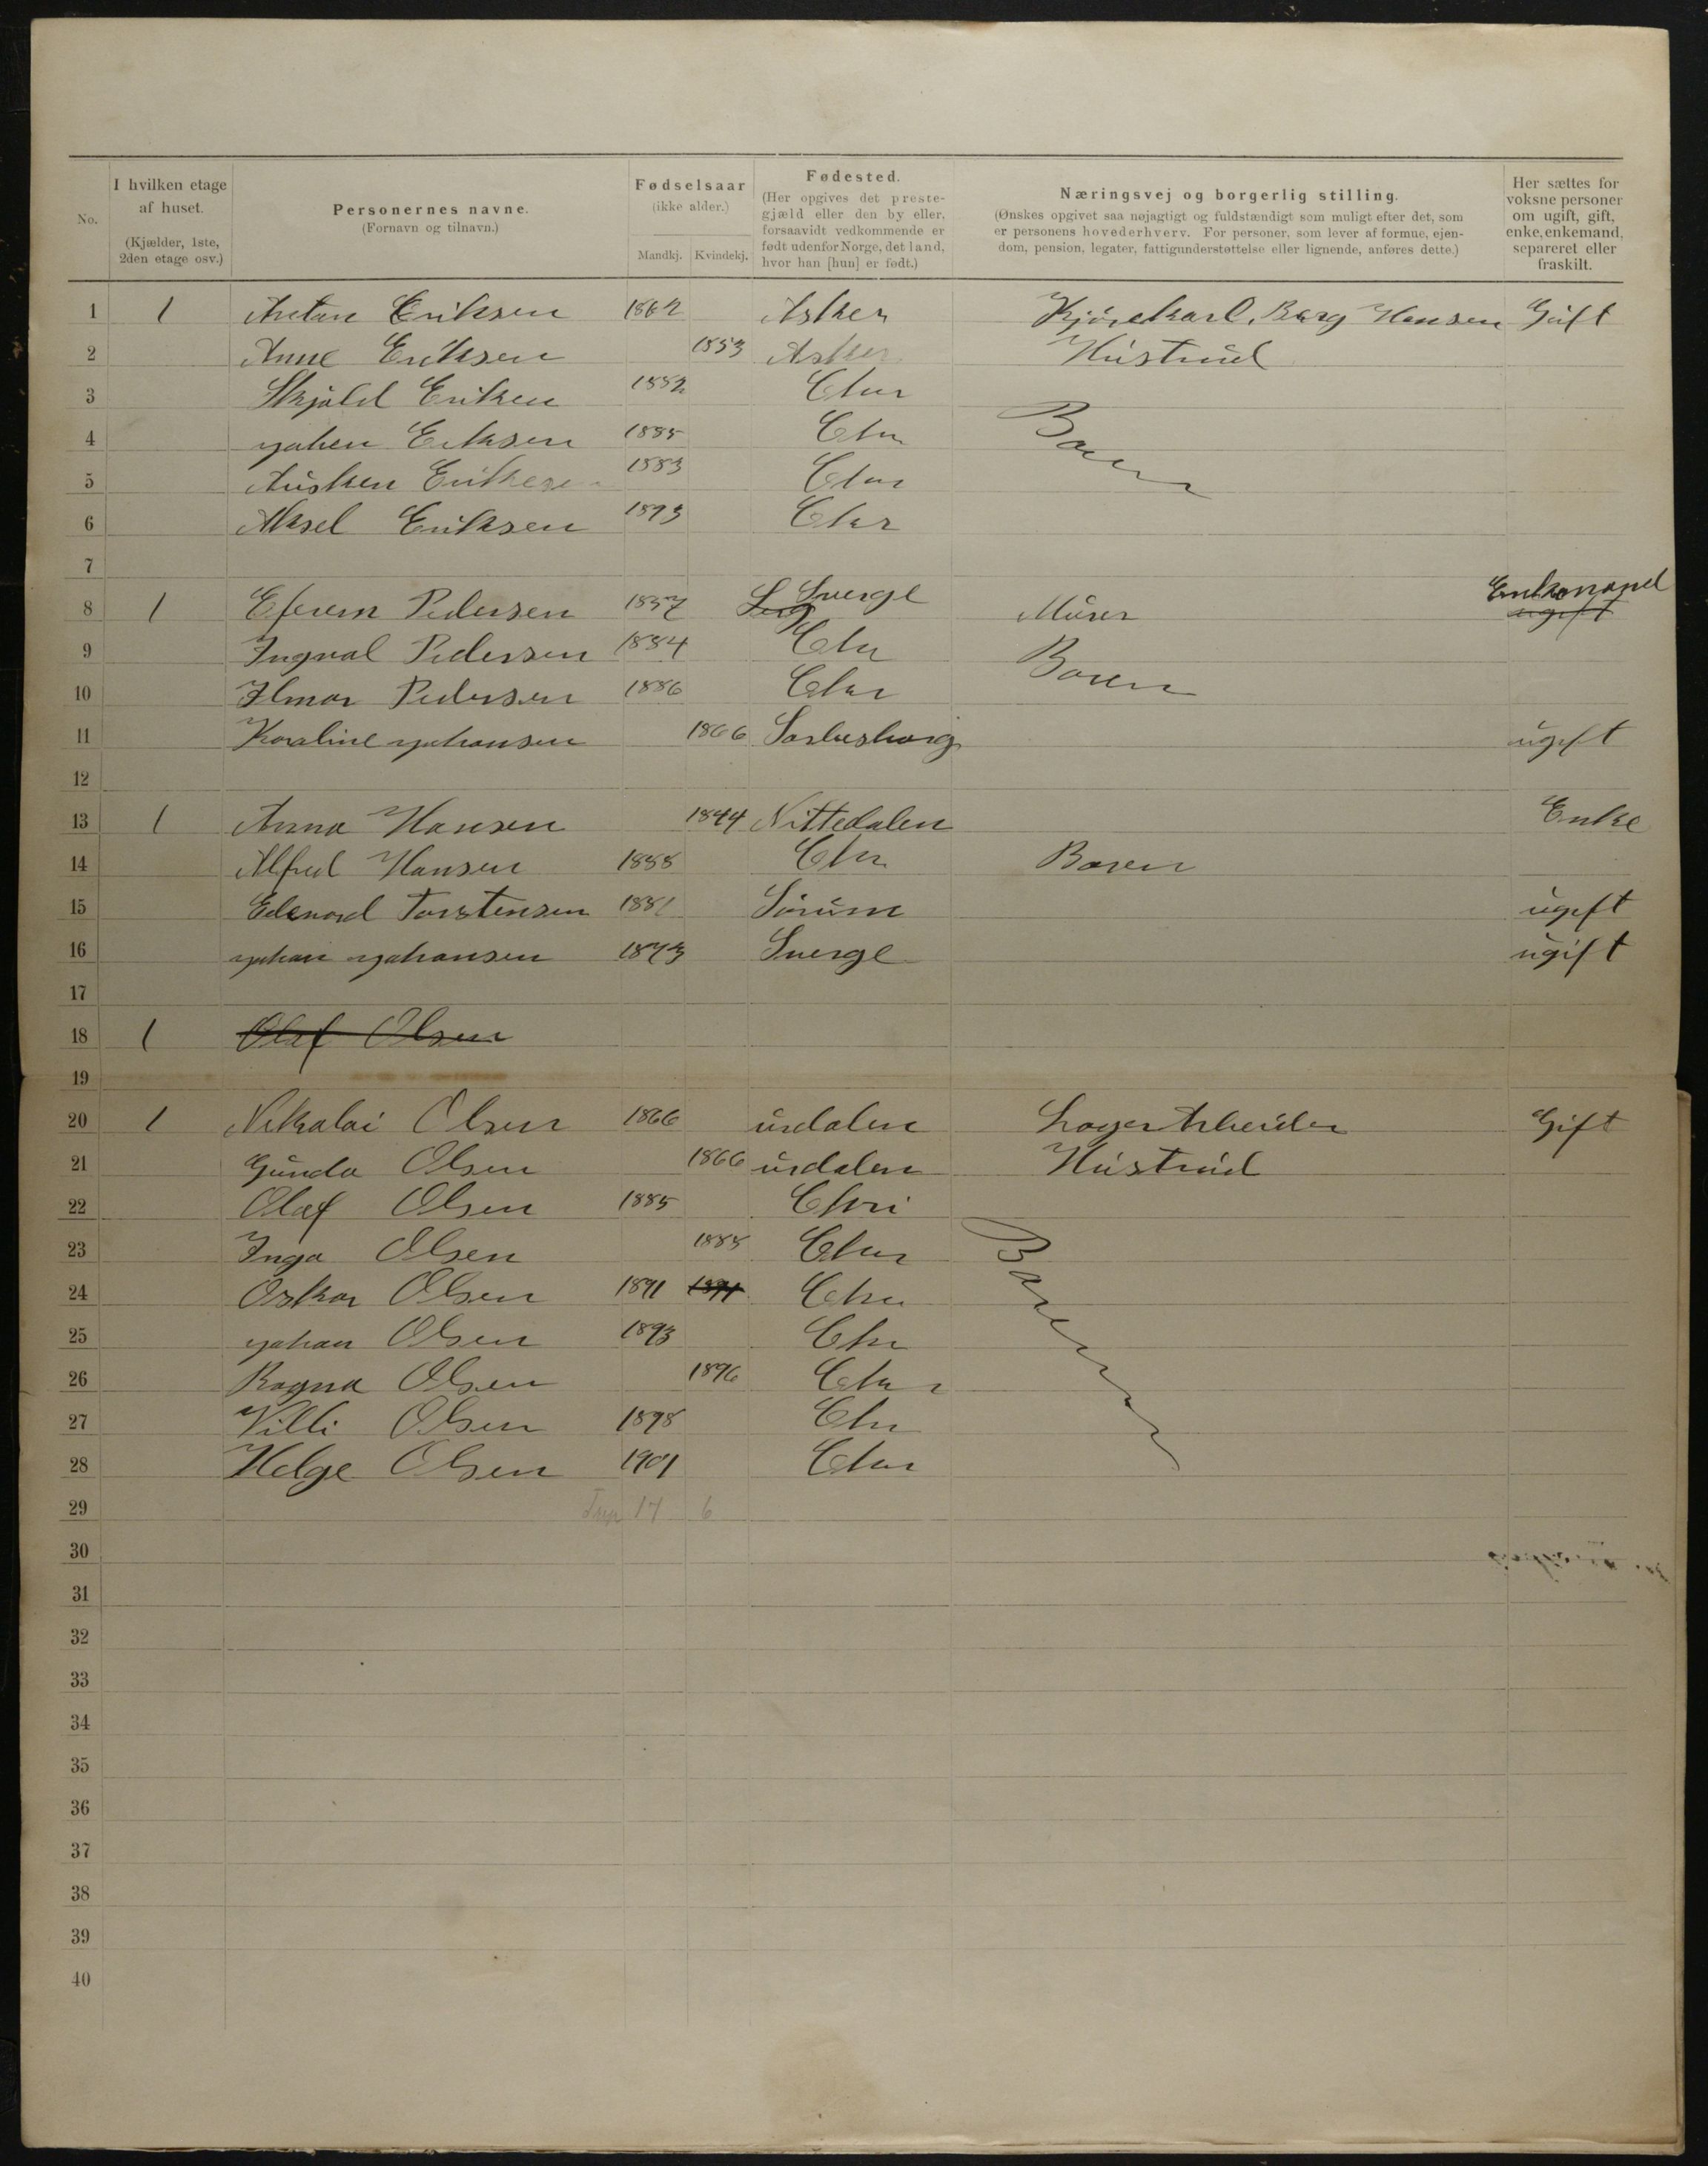 No.
I hvilken etage af huset.
(Kjælder, 1ste, 2den etage osv.)
Personernes navne.
(Fornavn og tilnavn.)
Fødselsaar
(ikke alder.)
Mandkj. Kvindekj.
Fødested.
(Her opgives det prestegjæld eller den by eller, forsaavidt vedkommende er født udenfor Norge, det land, hvor han [hun] er født.)
Næringsvej og borgerlig stilling.
(Ønskes opgivet saa nøjagtigt og fuldstændigt som muligt efter det, som er personens hovederhverv. For personer, som lever af formue, ejendom, pension, legater, fattigunderstøttelse eller lignende, anføres dette.)
Her sættes for voksne personer om ugift, gift, enke, enkemand, separeret eller fraskilt.
1 1 Antan Eriksen 1862 Asker Kjørekarl. Berg Hansen Gift
2 Anne Eriksen 1853 Asker Hustrud
3 Eriksen 1882 Chr
4 Eriksen 1885 Chr Baren
5 Eriksen 1883 Chr
6 Aksel Eriksen 1893 Chr
7
8 1 Efrem Pedersen 1837 Sverge Murer Enkemand ugift
9 Ingval Pedersen 1884 Chr Baren
10 Ilmar Pedersen 1886 Chr
11 Karaline Johansen 1866 ugift
12
13 1 Anna Hansen 1844 Nittedalen Enke
14 Alfred Hansen 1888 Chr Baren
15 Edevard Torstensen 1881 Sørum ugift
16 Johan Johansen 1873 Sverge ugift
17
18 1 Olaf Olsen
19
20 1 Nikalai Olsen 1866 urdalen Lager Arbeider Gift
21 Gunda Olsen 1866 urdalen Hustrud
22 Olaf Olsen 1885 Chri
23 Inga Olsen 1888 Chr Baren
24 Oskar Olsen 1891 1891 Chr
25 Johan Olsen 1893 Chr
26 Ragna Olsen 1896 Chr
27 Villi Olsen 1898 Chr
28 Helge Olsen 1901 Chr
29 17 6
30
31
32
33
34
35
36
37
38
39
40